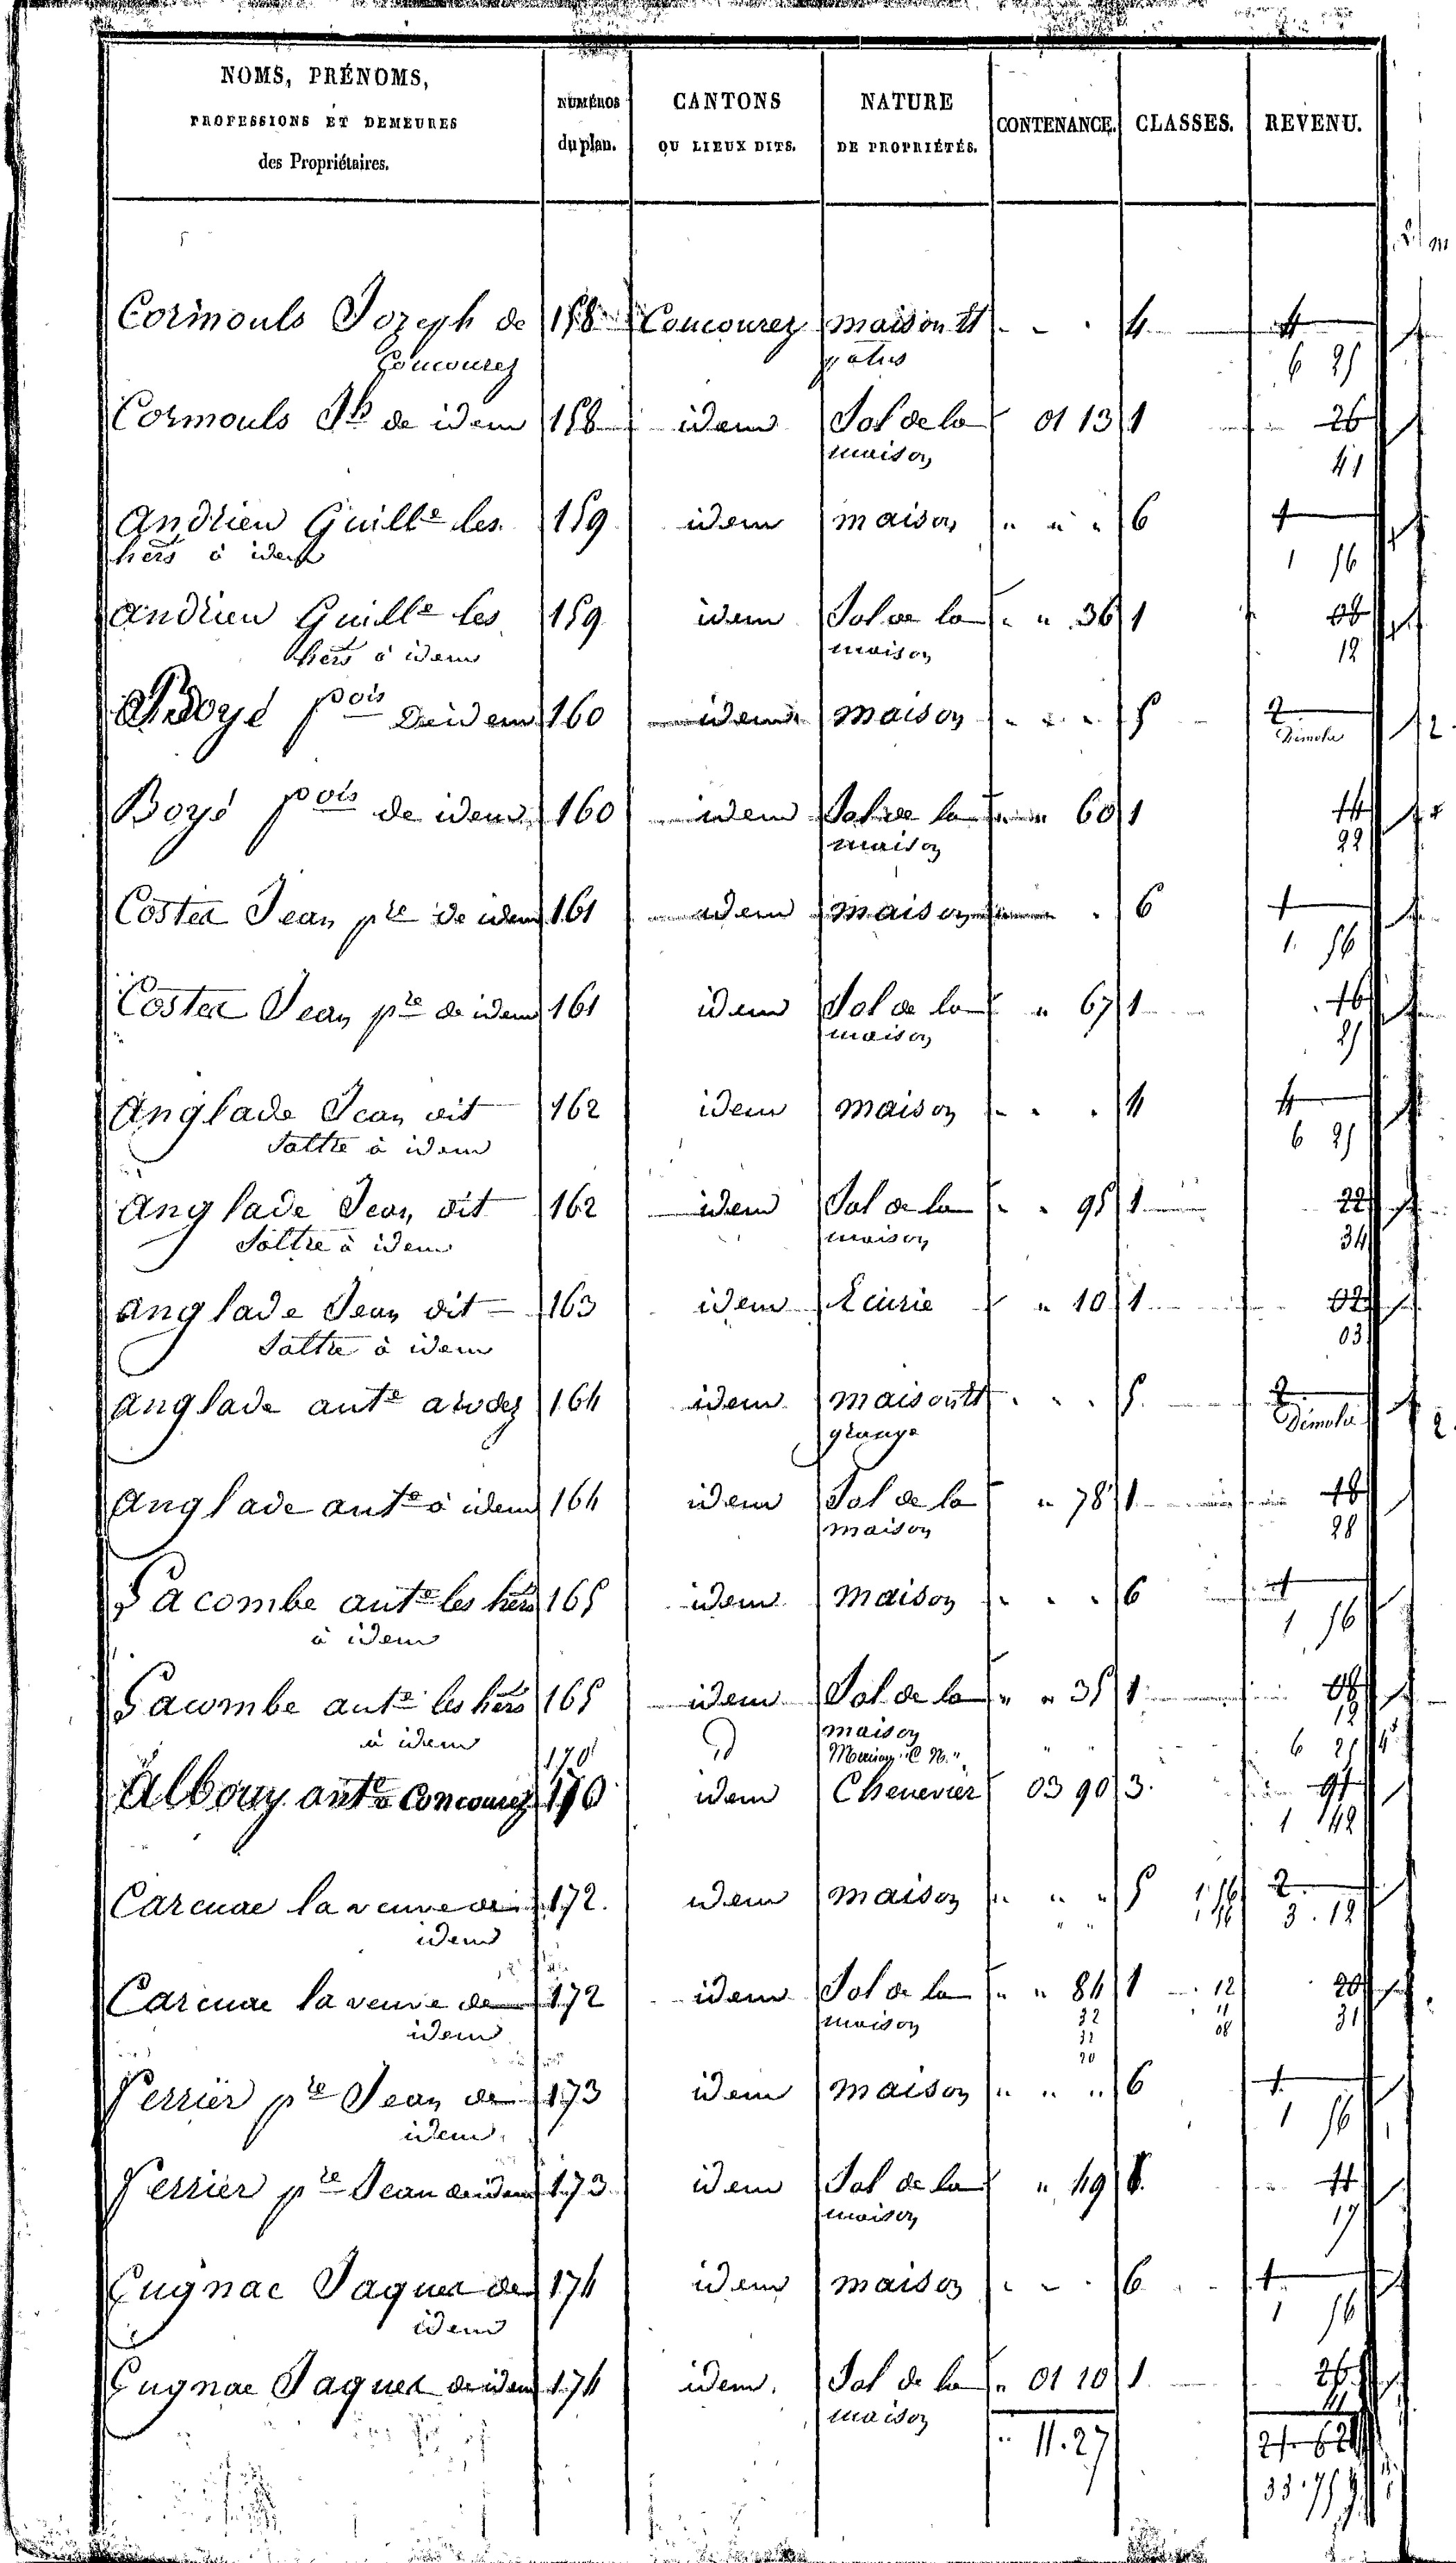 NOMS, PRÉNOMS,
PROFESSIONS ET DEMEURES
des Propriétaires.
NUMÉROS
du plan.
CANTONS
OU LIEUX DITS.
NATURE
DE PROPRIÉTÉS.
CONTENANCE.
CLASSES.
REVENU.
Cormouls Jozeph de 158 Concourez maison et 4 4
Concourez patus 6 25
Cormouls Jh de idem 158 idem Sol de la 01 13 1 26
maison 41
Andrieu Guille les 159 idem maison " " " 6 1
hers à idem 1 56
Andrieu Guille les 159 idem Sol de la " " 36 1 08
hers à idem maison 12
Boyé fcois de idem 160 idem maison 5 2
Démolie
Boyé fcois de idem 160 idem Sol de la " 60 1 14
maison 22
Coster Jean pre de idem 161 idem maison 6 1
1 56
Coster Jean pre de idem 161 idem Sol de la " 67 1 16
maison 25
Anglade Jean dit 162 idem maison 4 4
Saltre à idem 6 25
Anglade Jean dit 162 idem Sol de la " 95 1 22
Saltre à idem maison 34
Anglade Jean dit 163 idem Ecurie " 10 1 02
Saltre à idem 03
Anglade ante a rodez 164 idem maison et 5 2
grange Démolie
Anglade ante à idem 164 idem Sol de la " 78 1 18
maison 28
Lacombe ante les hers 165 idem maison 6 1
à idem 1 56
Lacombe ante les hers 165 idem Sol de la " " 35 1 08
à idem maison 12
170 D Maison C. N. " " 6 25
Albouy ante Concourez 170 idem Chenevier 03 90 3 91
1 42
Carcuac la veuve de 172 idem maison " " " 5 1.56 2
idem " " 1 56 3.12
Carcuac la veuve de 172 idem Sol de la " " 84 1 12 20
idem maison 32 11 31
32 08
20
Perrier pre Jean de 173 idem maison " " " 6 1
idem 1 56
Perrier pre Jean de idem 173 idem Sol de la " 49 1 11
maison 17
Cugnac Jaques de 174 idem maison 6 1
idem 1 56
Cugnac Jaques de idem 174 idem Sol de la " 01 10 1 26
maison 41
" 11.27 21.62
33.75